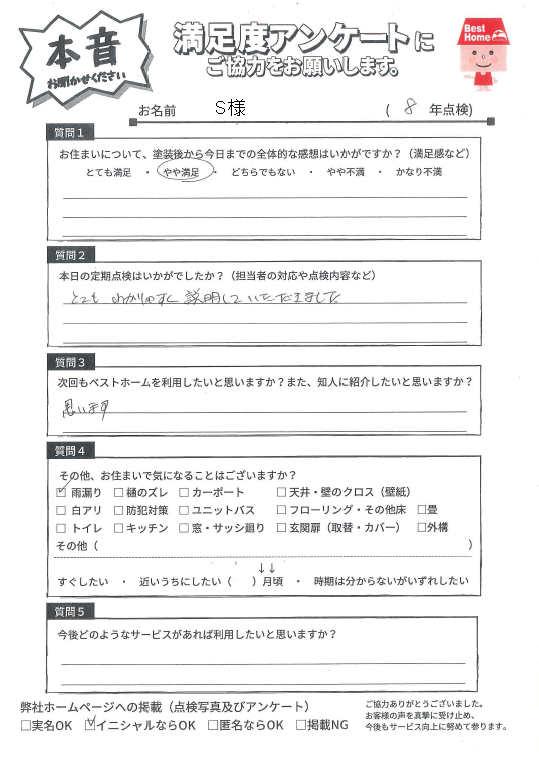 本音
お聞かせください
満足度アンケートに
ご協力をお願いします。
Best
Home
お名前 S様 ( 8 年点検)
質問1
お住まいについて、塗装後から今日までの全体的な感想はいかがですか？（満足感など）
とても満足 ・ やや満足 ・ どちらでもない ・ やや不満 ・ かなり不満
質問2
本日の定期点検はいかがでしたか？（担当者の対応や点検内容など）
とても わかりやすく 説明して いただきました
質問3
次回もベストホームを利用したいと思いますか？また、知人に紹介したいと思いますか？
思います
質問4
その他、お住まいで気になることはございますか？
☑雨漏り □樋のズレ □カーポート □天井・壁のクロス（壁紙）
□白アリ □防犯対策 □ユニットバス □フローリング・その他床 □畳
□トイレ □キッチン □窓・サッシ廻り □玄関扉（取替・カバー） □外構
その他（ ）
↓↓
すぐしたい ・ 近いうちにしたい（ ）月頃 ・ 時期は分からないがいずれしたい
質問5
今後どのようなサービスがあれば利用したいと思いますか？
弊社ホームページへの掲載（点検写真及びアンケート）
□実名OK ☑イニシャルならOK □匿名ならOK □掲載NG
ご協力ありがとうございました。
お客様の声を真摯に受け止め、
今後もサービス向上に努めて参ります。